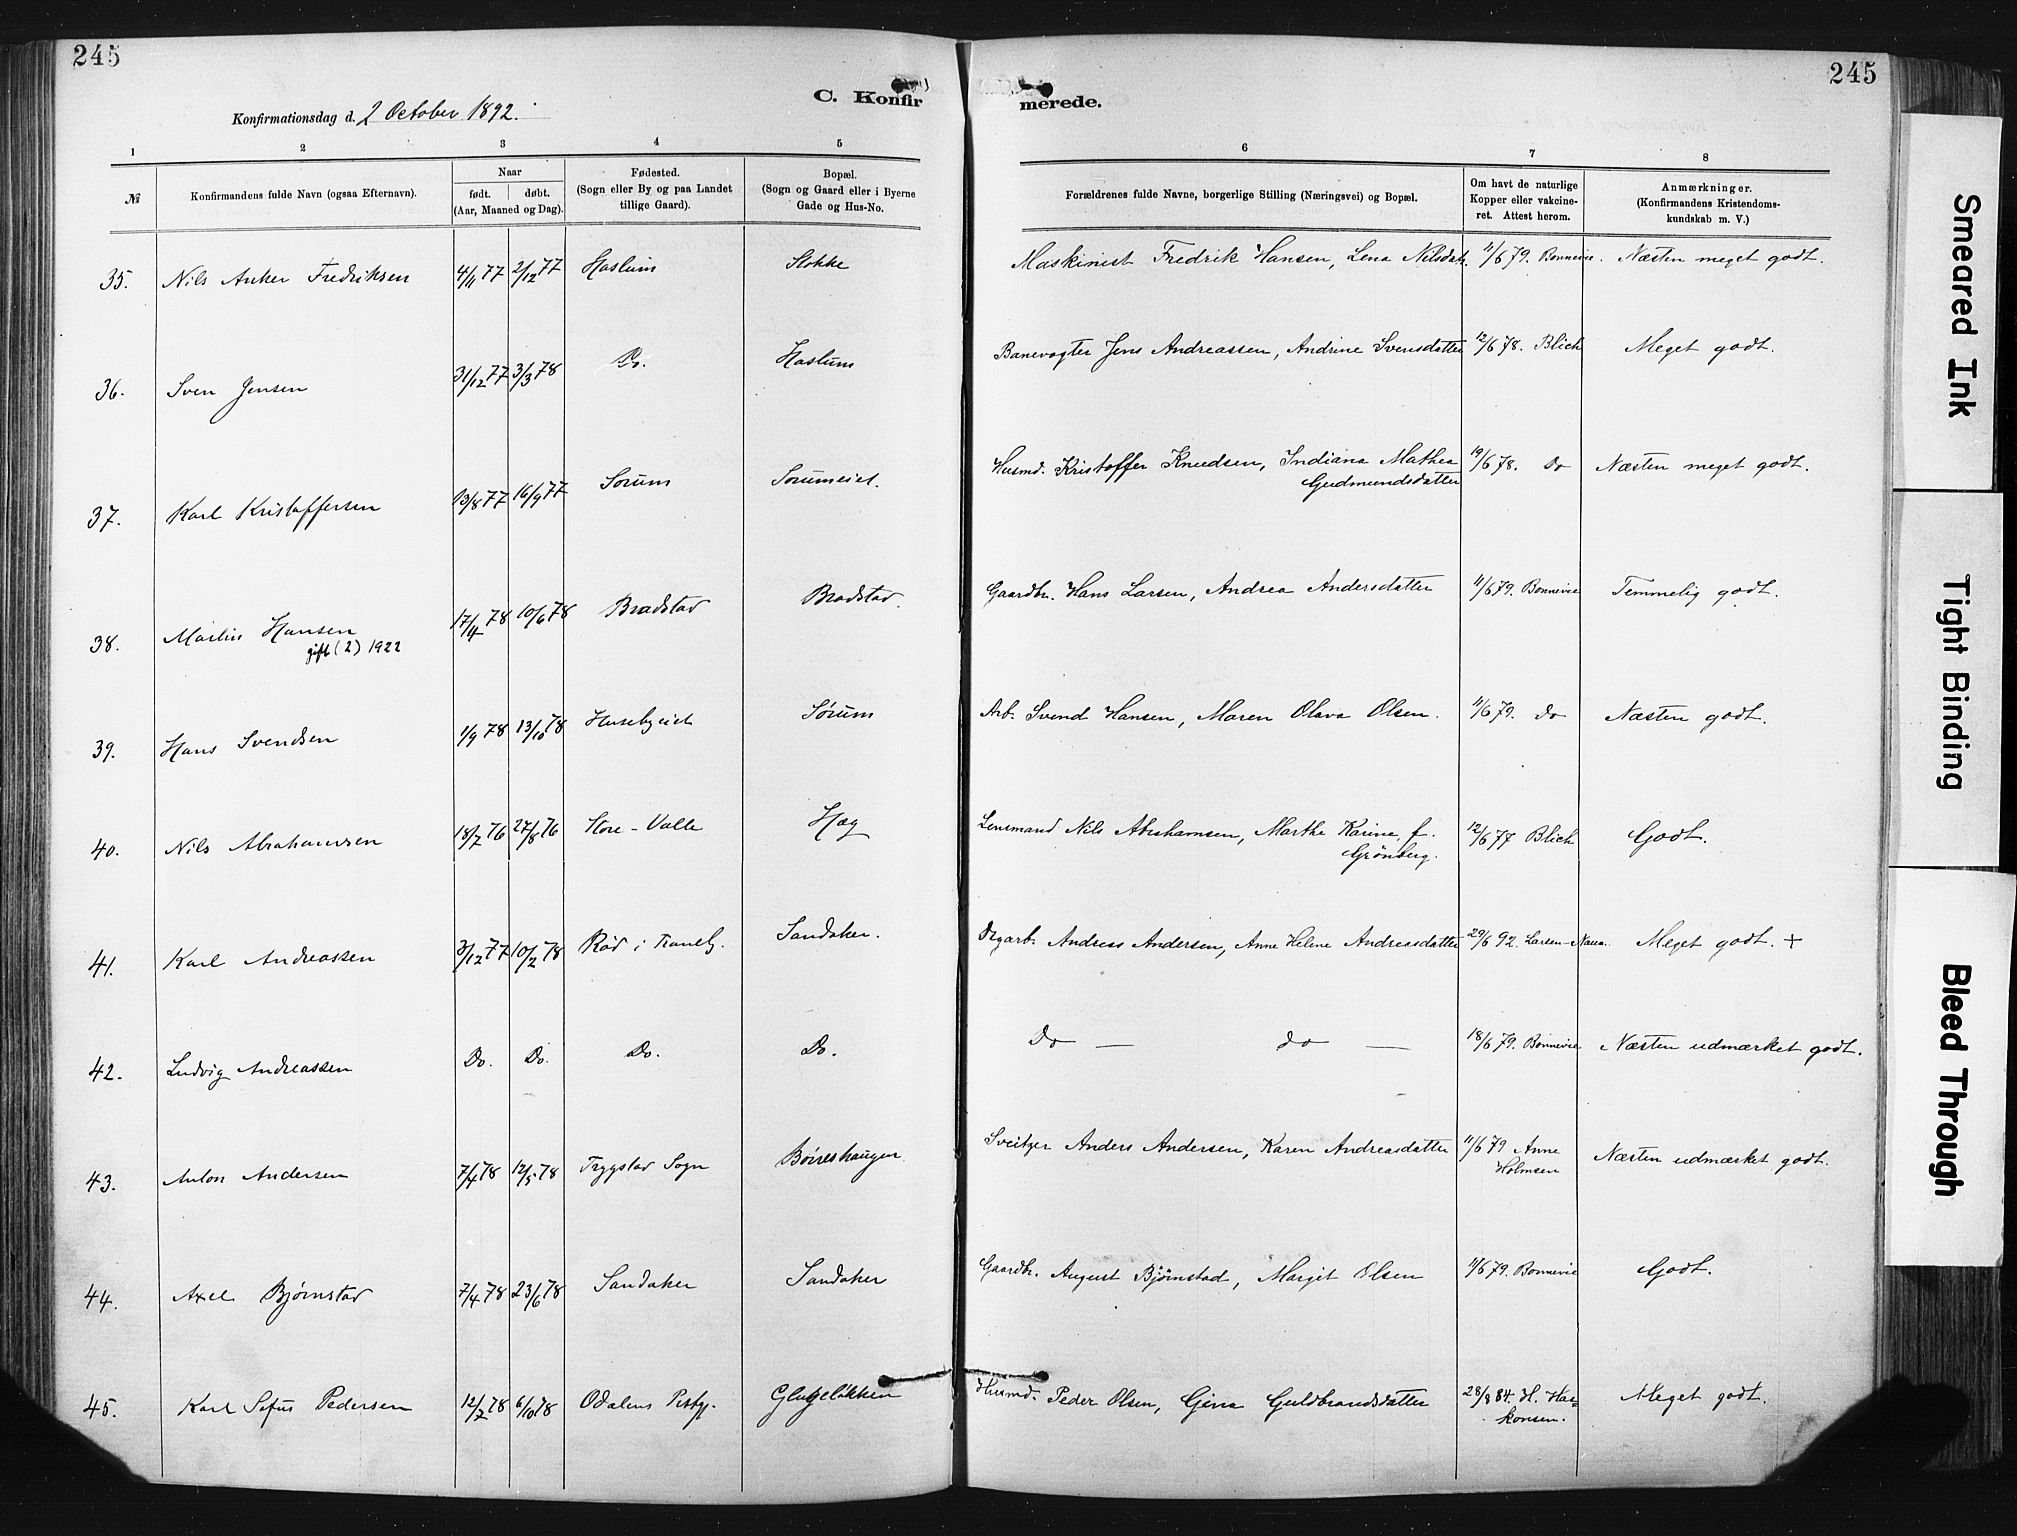 245
245
C. Konfir
merede.
Konfirmationsdag d. 2 October 1892.
1 2 3 4 5 6 7 8
№ Konfirmandens fulde Navn (ogsaa Efternavn).
Naar
født. døbt.
(Aar, Maaned og Dag).
Fødested.
(Sogn eller By og paa Landet
tillige Gaard).
Bopæl.
(Sogn og Gaard eller i Byerne
Gade og Hus-No.
Forældrenes fulde Navne, borgerlige Stilling (Næringsvei) og Bopæl.
Om havt de naturlige
Kopper eller vakcine-
ret. Attest herom.
Anmærkninger.
(Konfirmandens Kristendoms-
kundskab m. V.)
35. Nils Anker Fredriksen 4/11 77 2/12 77 Haslum Stokke Maskinist Fredrik Hansen, Lena Nilsdatt. 11/6 79. Bonnevie. Næsten meget godt.
36. Sven Jensen 31/12 77 3/3 78 Do. Haslum Banevogter Jens Andreassen, Andrine Svensdatter 12/6 78. Blich Meget godt.
37. Karl Kristoffersen 13/8 77 16/9 77 Sørum Sørumeiet. Husmd. Kristoffer Knudsen, Indiana Mathea
Gudmundsdatter 19/6 78. do Næsten meget godt.
38. Martin Hansen 17/4 78 10/6 78 Bradstad Bradstad. Gaardbr. Hans Larsen, Andrea Andersdatter 11/6 79. Bonnevie Temmelig godt.
gift (2) 1922
39. Hans Svendsen 1/9 78 13/10 78 Husebyeiet Sørum Arb. Svend Hansen, Maren Olava Olsen. 11/6 79. do Næsten godt.
40. Nils Abrahamsen 18/7 76 27/8 76 Store-Valle Hæg Lensmand Nils Abrahamsen, Marthe Karine, f.
Grönberg. 12/6 77 Blich Godt.
41. Karl Andreassen 3/12 77 10/2 78 Rød i Traneb. Sandaker. Dgarb. Andreas Andersen, Anne Helene Andreasdatter 29/6 92. Larsen-Næss. Meget godt. +
42. Ludvig Andreassen Do. Do. Do. Do. Do — do — 18/6 79. Bonnevie Næsten udmærket godt.
43. Anton Andersen 7/4 78 12/5 78 Trygstad Sogn Böireshaugen. Sveitzer Anders Andersen, Karen Andreasdatter 11/6 79 Anne
Holmsen Næsten udmærket godt.
44. Axel Bjørnstad 7/4 78 23/6 78 Sandaker Sandaker Gaardbr. August Bjørnstad, Margit Olsen 11/6 79. Bonnevie Godt.
45. Karl Sefus Pedersen 12/7 78 6/10 78 Odalens Prstgj. Glugeløkken Husmd. Peder Olsen, Gina Guldbrandsdatter 28/8 84. H. Haa-
konsen. Meget godt.
Smeared Ink
Tight Binding
Bleed Through